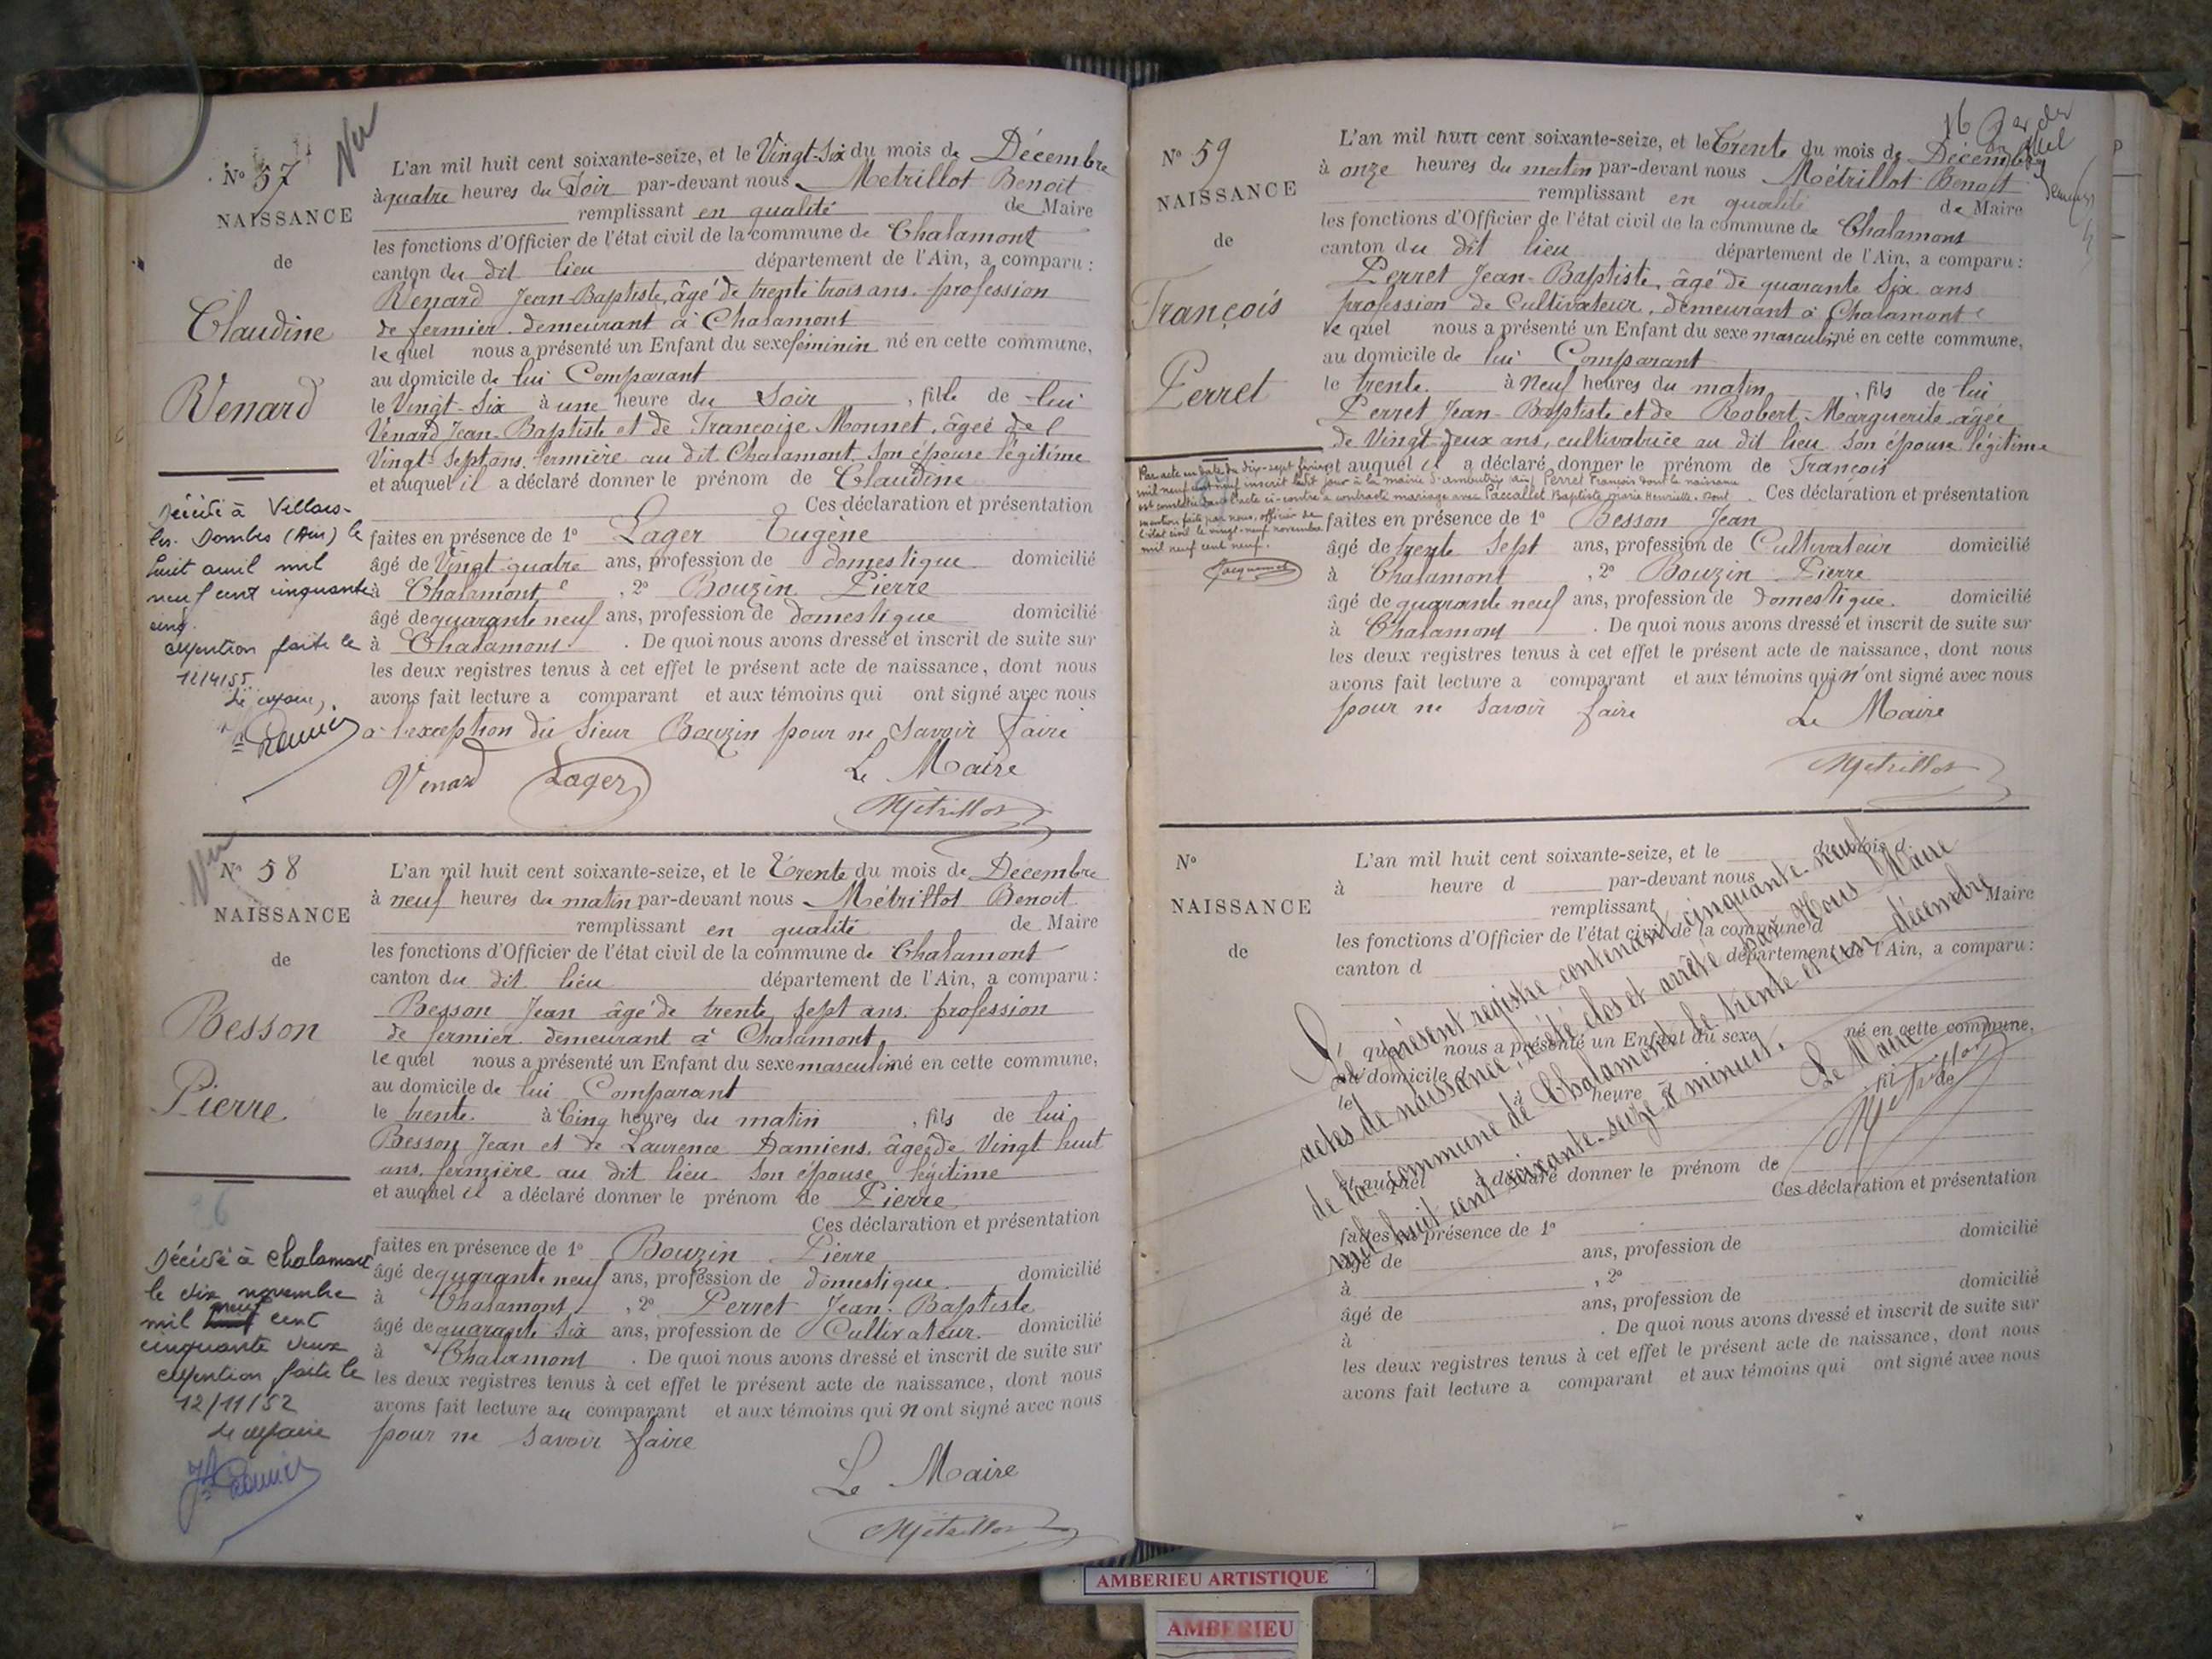 N° 57
Vu
NAISSANCE
de
Claudine
Venard
L'an mil huit cent soixante-seize, et le Vingt-Six du mois de Décembre
à quatre heures du Soir par-devant nous Métrillot Benoit
remplissant en qualité de Maire
les fonctions d'Officier de l'état civil de la commune de Chalamont
canton du dit lieu département de l'Ain, a comparu :
Venard Jean-Baptiste, âgé de trente trois ans. profession
de fermier. demeurant à Chalamont
lequel nous a présenté un Enfant du sexe féminin né en cette commune,
au domicile de lui Comparant
le Vingt-Six à une heure du Soir, fille de lui
Venard Jean-Baptiste et de Françoise Monnet, âgée de
Vingt-Sept ans, fermière au dit Chalamont, Son épouse légitime
et auquel il a déclaré donner le prénom de Claudine
Ces déclaration et présentation
faites en présence de 1° Lager Eugène
âgé de Vingt quatre ans, profession de domestique domicilié
à Chalamont, 2° Bouzin Pierre
âgé de quarante neuf ans, profession de domestique domicilié
à Chalamont. De quoi nous avons dressé et inscrit de suite sur
les deux registres tenus à cet effet le présent acte de naissance, dont nous
avons fait lecture a comparant et aux témoins qui ont signé avec nous
à l'exception du Sieur Bouzin pour ne Savoir faire
Venard Lager Le Maire
Métrillot
Décédé à Villars-
les-Dombes (Ain) le
huit avril mil
neuf cent cinquante
cinq.
Mention faite le
12/4/55
Le Maire,
N° 58
Vu
NAISSANCE
de
Besson
Pierre
L'an mil huit cent soixante-seize, et le Trente du mois de Décembre
à neuf heures du matin par-devant nous Métrillot Benoit
remplissant en qualité de Maire
les fonctions d'Officier de l'état civil de la commune de Chalamont
canton du dit lieu département de l'Ain, a comparu :
Besson Jean âgé de trente Sept ans. profession
de fermier. demeurant à Chalamont
lequel nous a présenté un Enfant du sexe masculin né en cette commune,
au domicile de lui Comparant
le trente à Cinq heures du matin, fils de lui
Besson Jean et de Laurence Damiens, âgée de Vingt huit
ans, fermière au dit lieu Son épouse légitime
et auquel il a déclaré donner le prénom de Pierre
Ces déclaration et présentation
faites en présence de 1° Bouzin Pierre
âgé de quarante neuf ans, profession de domestique domicilié
à Chalamont, 2° Perret Jean-Baptiste
âgé de quarante Six ans, profession de Cultivateur domicilié
à Chalamont. De quoi nous avons dressé et inscrit de suite sur
les deux registres tenus à cet effet le présent acte de naissance, dont nous
avons fait lecture au comparant et aux témoins qui n'ont signé avec nous
pour ne Savoir faire
Le Maire
Métrillot
Décédé à Chalamont
le dix novembre
mil neuf cent
cinquante deux
Mention faite le
12/11/52
Le Maire
N° 59
NAISSANCE
de
François
Perret
L'an mil huit cent soixante-seize, et le Trente du mois de Décembre
à onze heures du matin par-devant nous Métrillot Benoît
remplissant en qualité de Maire
les fonctions d'Officier de l'état civil de la commune de Chalamont
canton du dit lieu département de l'Ain, a comparu :
Perret Jean-Baptiste, âgé de quarante Six ans
profession de Cultivateur, demeurant à Chalamont
lequel nous a présenté un Enfant du sexe masculin né en cette commune,
au domicile de lui Comparant
le trente à Neuf heures du matin, fils de lui
Perret Jean-Baptiste et de Robert Marguerite âgée
de Vingt deux ans, cultivatrice au dit lieu Son épouse légitime
et auquel il a déclaré donner le prénom de François
Ces déclaration et présentation
faites en présence de 1° Besson Jean
âgé de trente Sept ans, profession de Cultivateur domicilié
à Chalamont, 2° Bouzin Pierre
âgé de quarante neuf ans, profession de Domestique domicilié
à Chalamont. De quoi nous avons dressé et inscrit de suite sur
les deux registres tenus à cet effet le présent acte de naissance, dont nous
avons fait lecture a comparant et aux témoins qui n'ont signé avec nous
pour ne Savoir faire Le Maire
Métrillot
Par acte en date du dix-sept février
mil neuf cent neuf inscrit ledit jour à la mairie d'Ambutrix (Ain) Perret François dont la naissance
est constatée dans l'acte ci-contre a contracté mariage avec Paccallet Baptistie Marie Henriette. Dont
mention faite par nous, officier de
l'état civil le vingt-neuf novembre
mil neuf cent neuf.
Jacquemet
N°
NAISSANCE
de
L'an mil huit cent soixante-seize, et le du mois d
à heure d par-devant nous
remplissant Maire
les fonctions d'Officier de l'état civil de la commune d
canton d département de l'Ain, a comparu :
quel nous a présenté un Enfant du sexe né en cette commune,
au domicile d
le heure fil de
et auquel a déclaré donner le prénom de
Ces déclaration et présentation
faites en présence de 1°
âgé de ans, profession de domicilié
à , 2°
âgé de ans, profession de domicilié
à . De quoi nous avons dressé et inscrit de suite sur
les deux registres tenus à cet effet le présent acte de naissance, dont nous
avons fait lecture a comparant et aux témoins qui ont signé avec nous
Le présent registre contenant cinquante-neuf
actes de naissance, a été clos et arrêté par Nous Maire
de la commune de Chalamont le trente et un décembre
mil huit cent soixante-seize à minuit.
Le Maire
Métrillot
AMBERIEU ARTISTIQUE
AMBERIEU